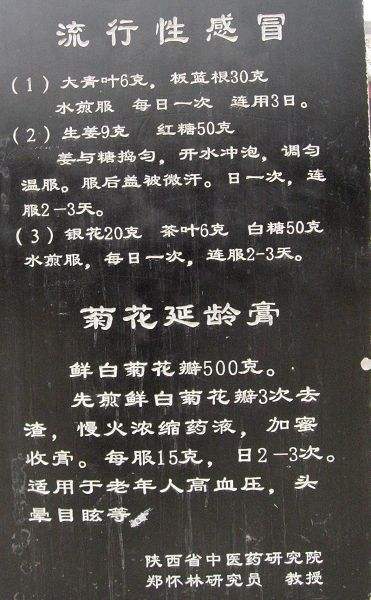 流行性感冒
(1)大青叶6克，板蓝根30克
水煎服 每日一次 连用3日。
(2)生姜9克 红糖50克
姜与糖捣匀，开水冲泡，调匀
温服。服后盖被微汗。日一次，连
服2-3天。
(3)银花20克 茶叶6克 白糖50克
水煎服，每日一次，连服2-3天。
菊花延龄膏
鲜白菊花瓣500克。
先煎鲜白菊花瓣3次去
渣，慢火浓缩药液，加蜜
收膏。每服15克，日2-3次。
适用于老年人高血压，头
晕目眩等
陕西省中医药研究院
郑怀林研究员 教授